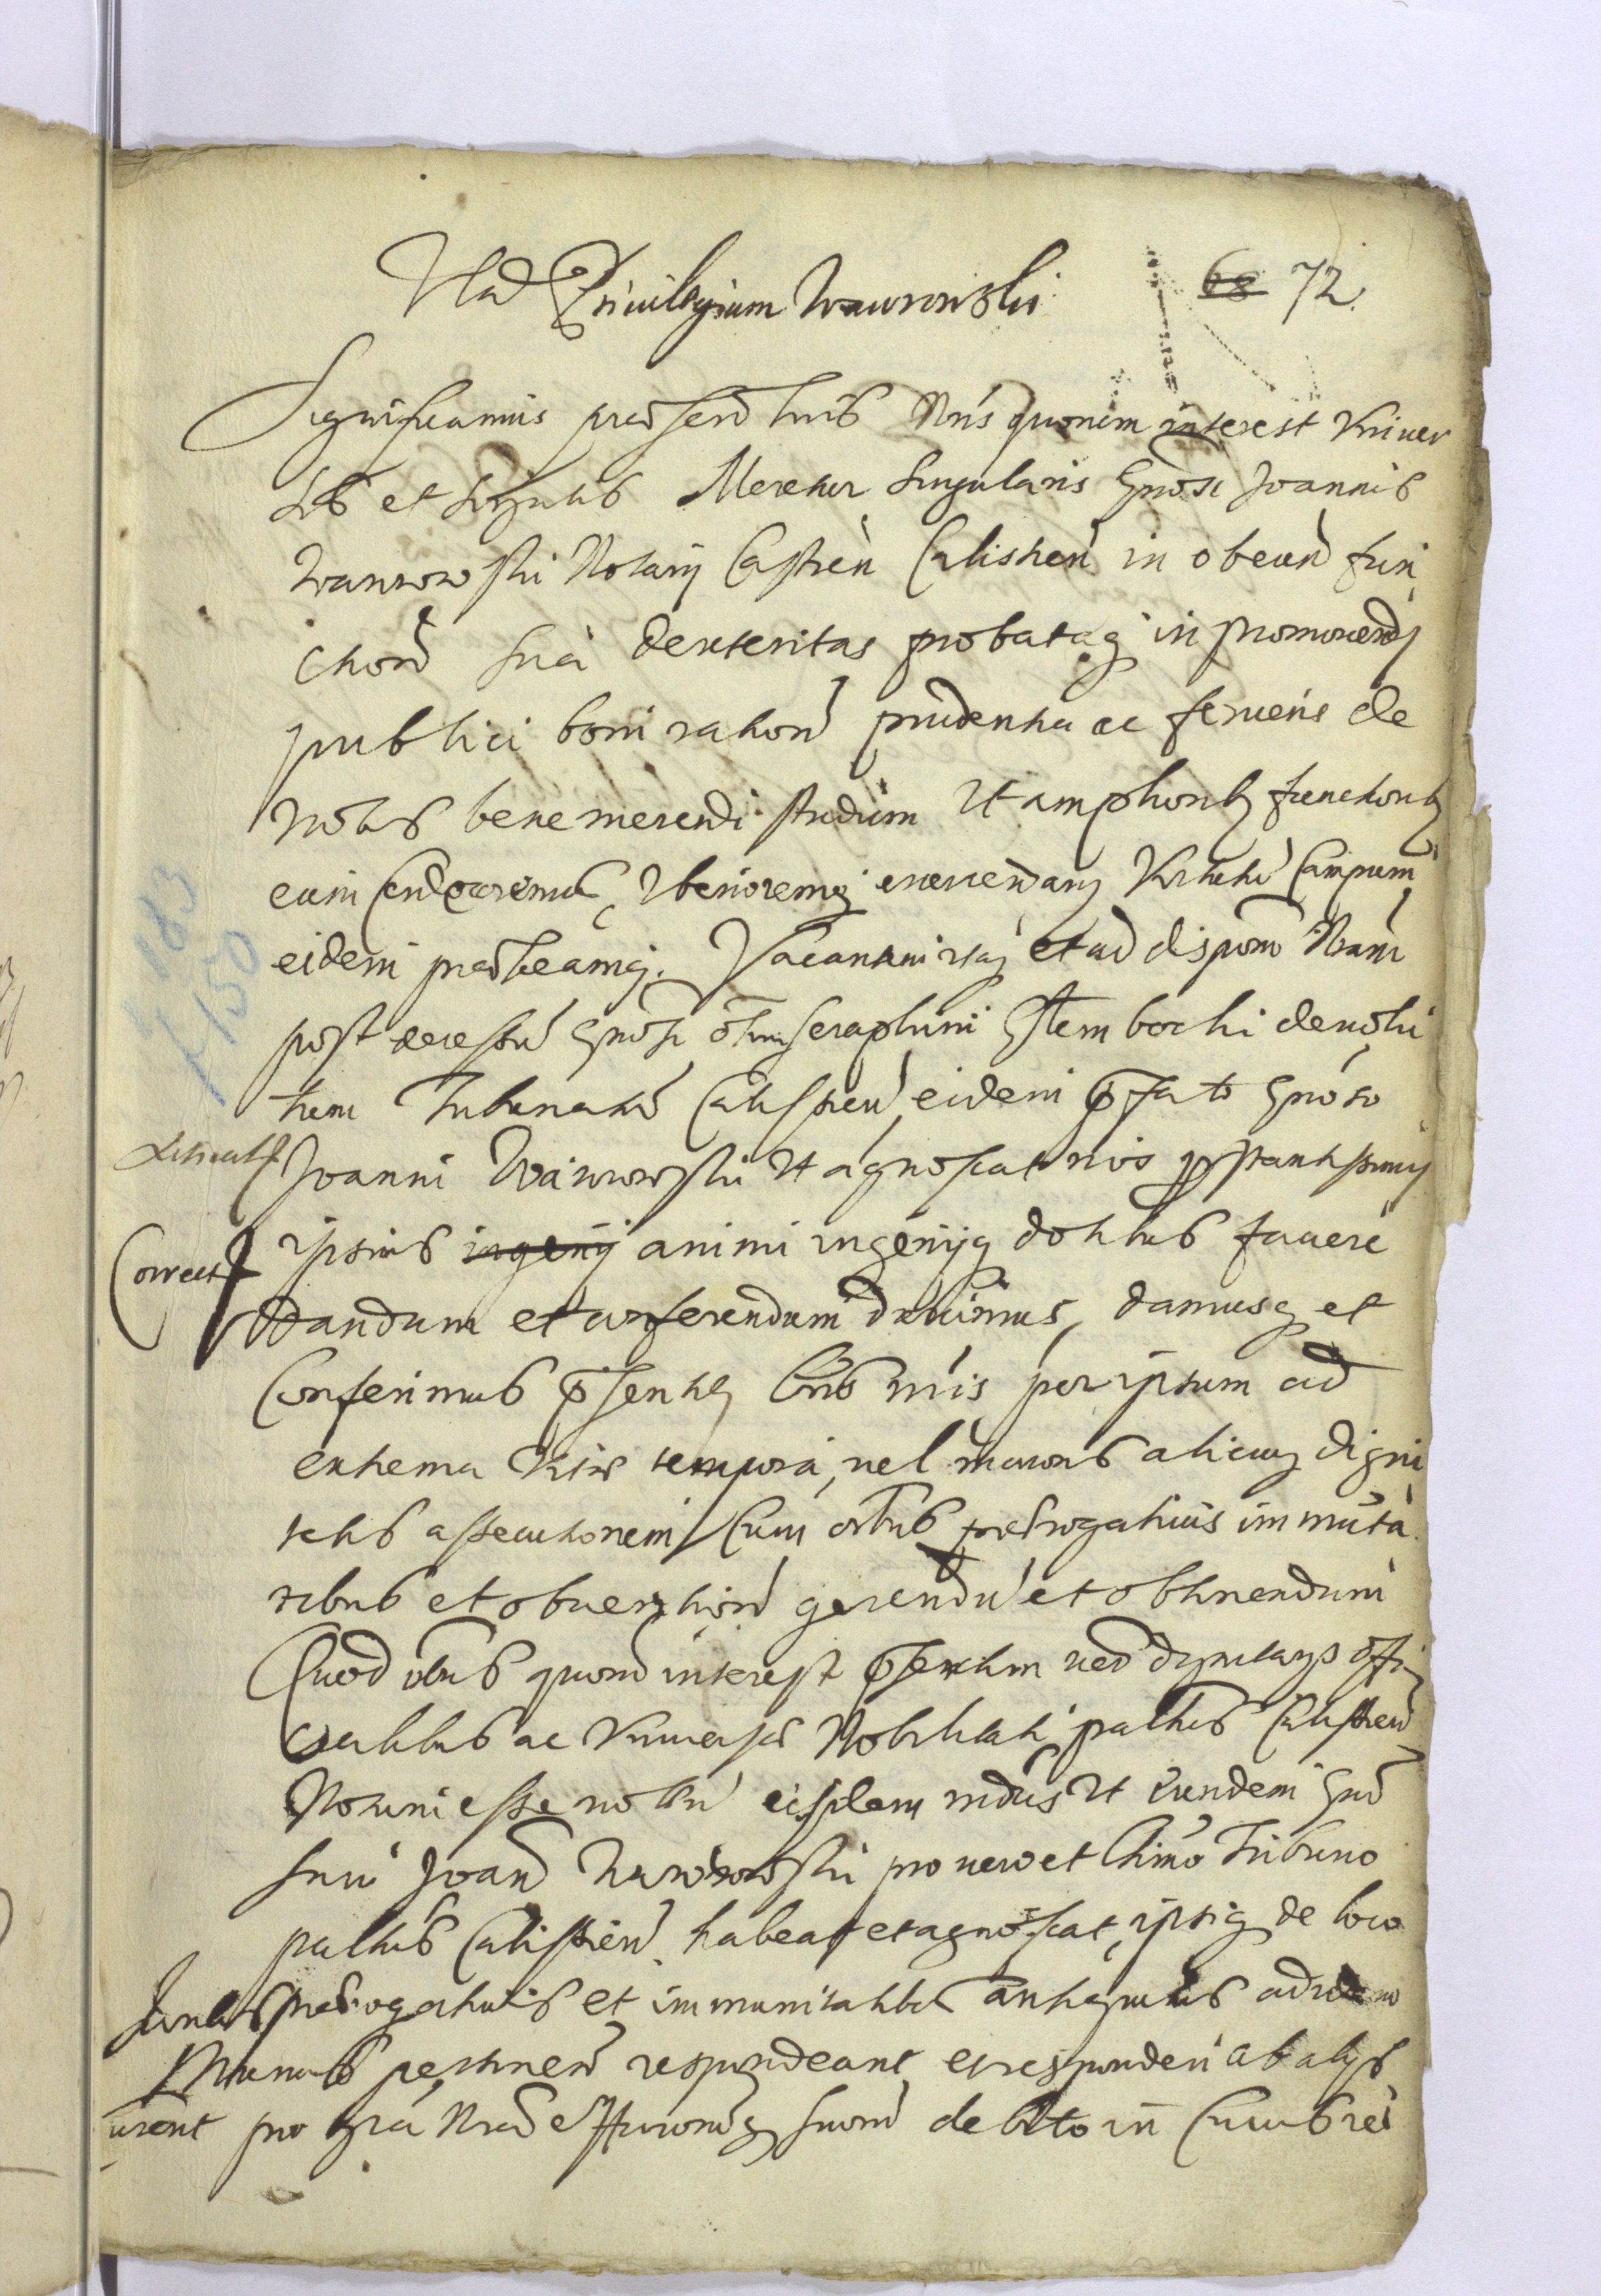 Vlad Priuilegium Wawrowski
68 72.
Significamus praesen lris Nris quorum interest Vniuer
sis et singulis Meretur singularis Gnosi Joannis
Wawrowski Notarij Castren Calishen in obeund fun
ctiond sua dexteritas probataq in promouendj
publici boni rationd prudentia ac feruens de
nobis bene merendi studium Vt amplioribq functionibq
eum condecoremus, Vberioremq exercendarq Virtutu Campum
eidem praebeamq. Vacantem itaq et ad dispom Nram
post decessu Gnosi olim Seraphini Stembochi deuolu
tum Tribunatu Calishien eidem pfato Gnoso
Joanni Wawrowski Vt agnoscat nos prstantissimis
Correct ipsius ingenij animi ingenijq dotibus fauere
dandum et conferendum duximus, damusq et
Conferimus psentibq lris nris per ipsum ad
extrema vitae tempora, vel maioris alicuiq digni
tatis assecutionem Cum oibus prerogatiuis immuta
tibus et obuentiond gerendu et obtinendum
Quod oibus quord interest psertim vero dignitarijs offi
cialibus ac Vniuersae Nobilitati pattus Calishien
Notum esse volu eisdem mdus Vt eundem Gno
sum Joand Wawrowski pro vero et ltimo Tribuno
pattus Calishien habeat et agnoscat, ipsiq de loco
Iuribus praerogatiuis et immunitatibus antiquitus ad id
Munus pertinend respondeant et responderi ab alijs
curent pro gra Nra et Officiorumq suord debito in Cuius rei